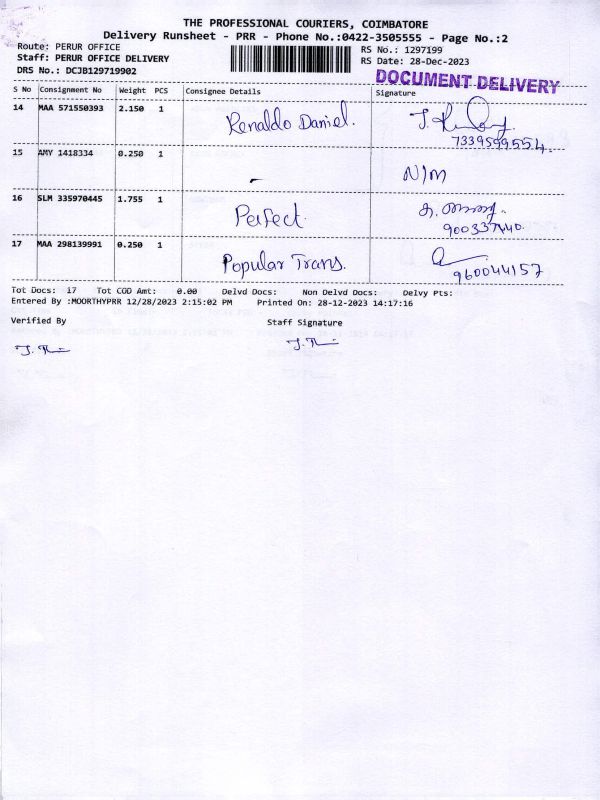 THE PROFESSIONAL COURIERS, COIMBATORE
Delivery Runsheet - PRR - Phone No.:0422-3505555 - Page No.:2
Route: PERUR OFFICE
RS No.: 1297199
Staff: PERUR OFFICE DELIVERY
RS Date: 28-Dec-2023
DRS No.: DCJB129719902
DOCUMENT DELIVERY
S No Consignment No Weight PCS Consignee Details Signature
14 MAA 571550393 2.150 1 Renaldo Daniel.
7339599554.
15 AMY 1418334 0.250 1 - N/M
16 SLM 335970445 1.755 1 Perfect.
17 MAA 298139991 0.250 1 Popular Trans.
960044157
Tot Docs: 17 Tot COD Amt: 0.00 Delvd Docs: Non Delvd Docs: Delvy Pts:
Entered By :MOORTHYPRR 12/28/2023 2:15:02 PM Printed On: 28-12-2023 14:17:16
Verified By Staff Signature